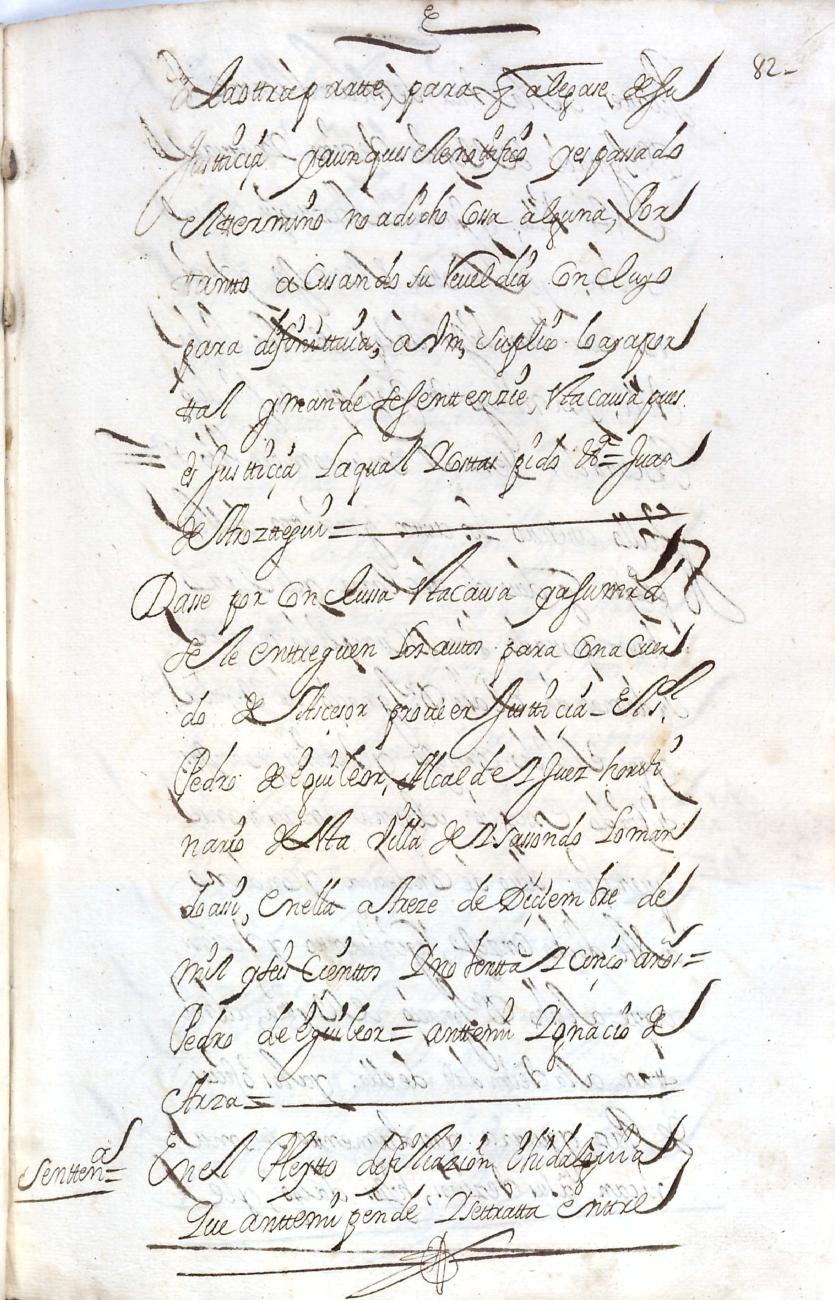 82
a la ottra partte, para q alegase de su
Justticia y aunque se le nottifico y es pasado
el ttermino no a dicho cosa alguna, Por
ttantto acusando su reveldia concluyo
para difinittiva, a Vm, suplico la aya por
ttal y mande se senttenzie, sta causa pues
es Justticia la qual costtas pido &ª = Juan
de Aroztegui =
Dase por conclussa sta causa y a su mrd
se le enttreguen los autos para con acuer
do de Asesor prover Justticia - El Sr
Pedro de eguileor, Alcalde y Juez hordi
nario de sta villa de Isasondo lo man
do assi, en ella a treze de Diciembre de
mil y seis cienttos y nobentta y cinco años =
Pedro de eguileor = antte mi Ygnacio de
Arza =
Senttenª =
En el Pleytto de filiazion, e hidalguia
que antte mi pende y se ttratta enttre